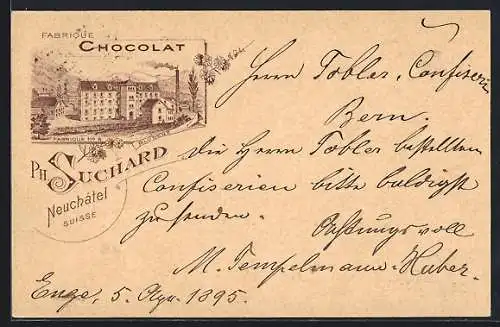 FABRIQUE
CHOCOLAT
PH. SUCHARD
Neuchâtel
SUISSE
Herrn Tobler, Confiserie
Bern.
Die Herrn Tobler bestellten
Confiserien bitte baldigst
zu senden. Achtungsvoll
M. Tempelmann-Huber.
Enge, 5. 1895.